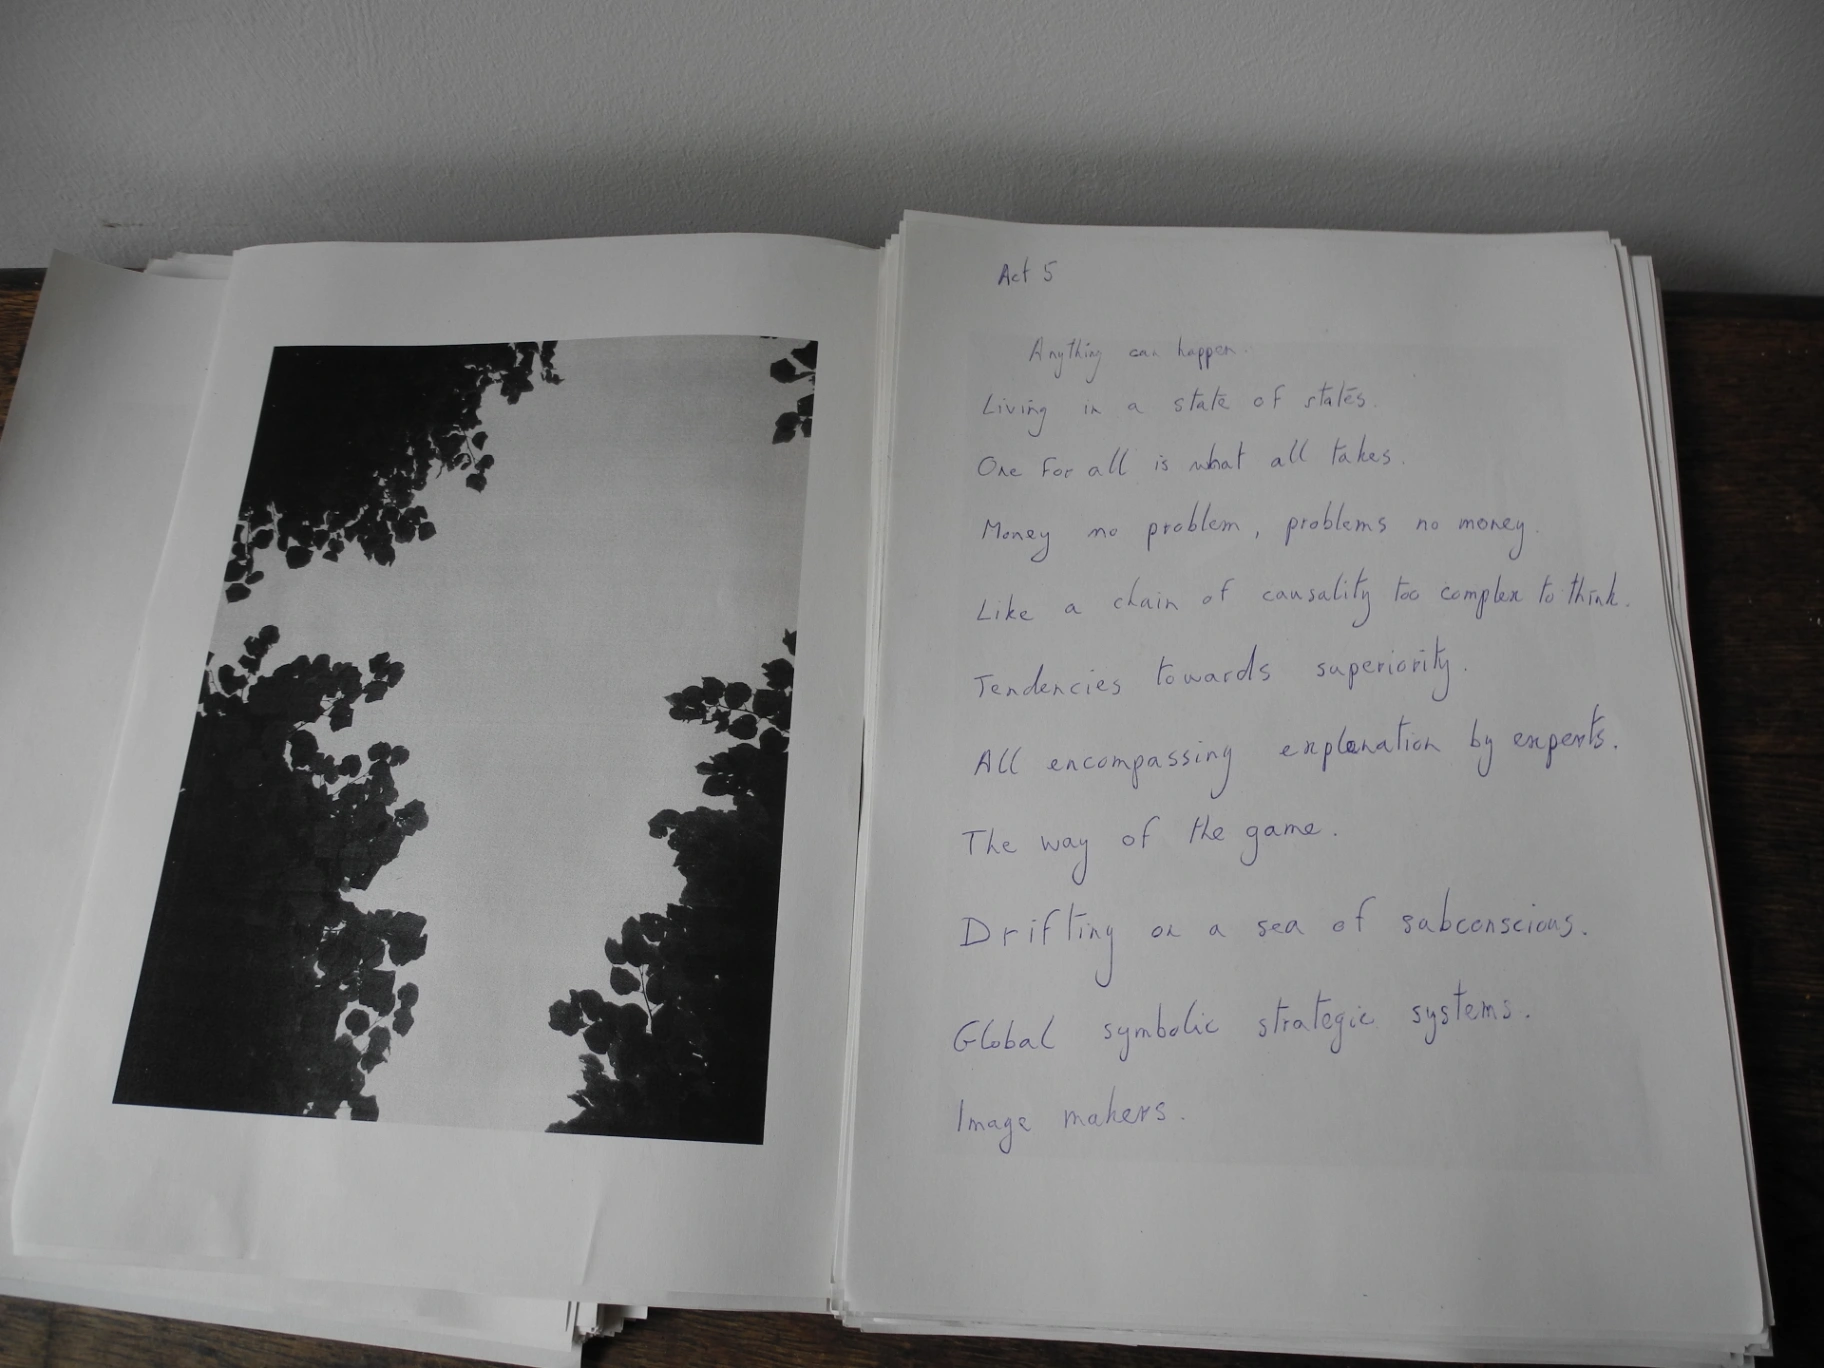 Act 5
Anything can happen.
Living in a state of states.
One for all is what all takes.
Money no problem, problems no money.
Like a chain of causality too complex to think.
Tendencies towards superiority.
All encompassing explanation by experts.
The way of the game.
Drifting on a sea of subconscious.
Global symbolic strategic systems.
Image makers.